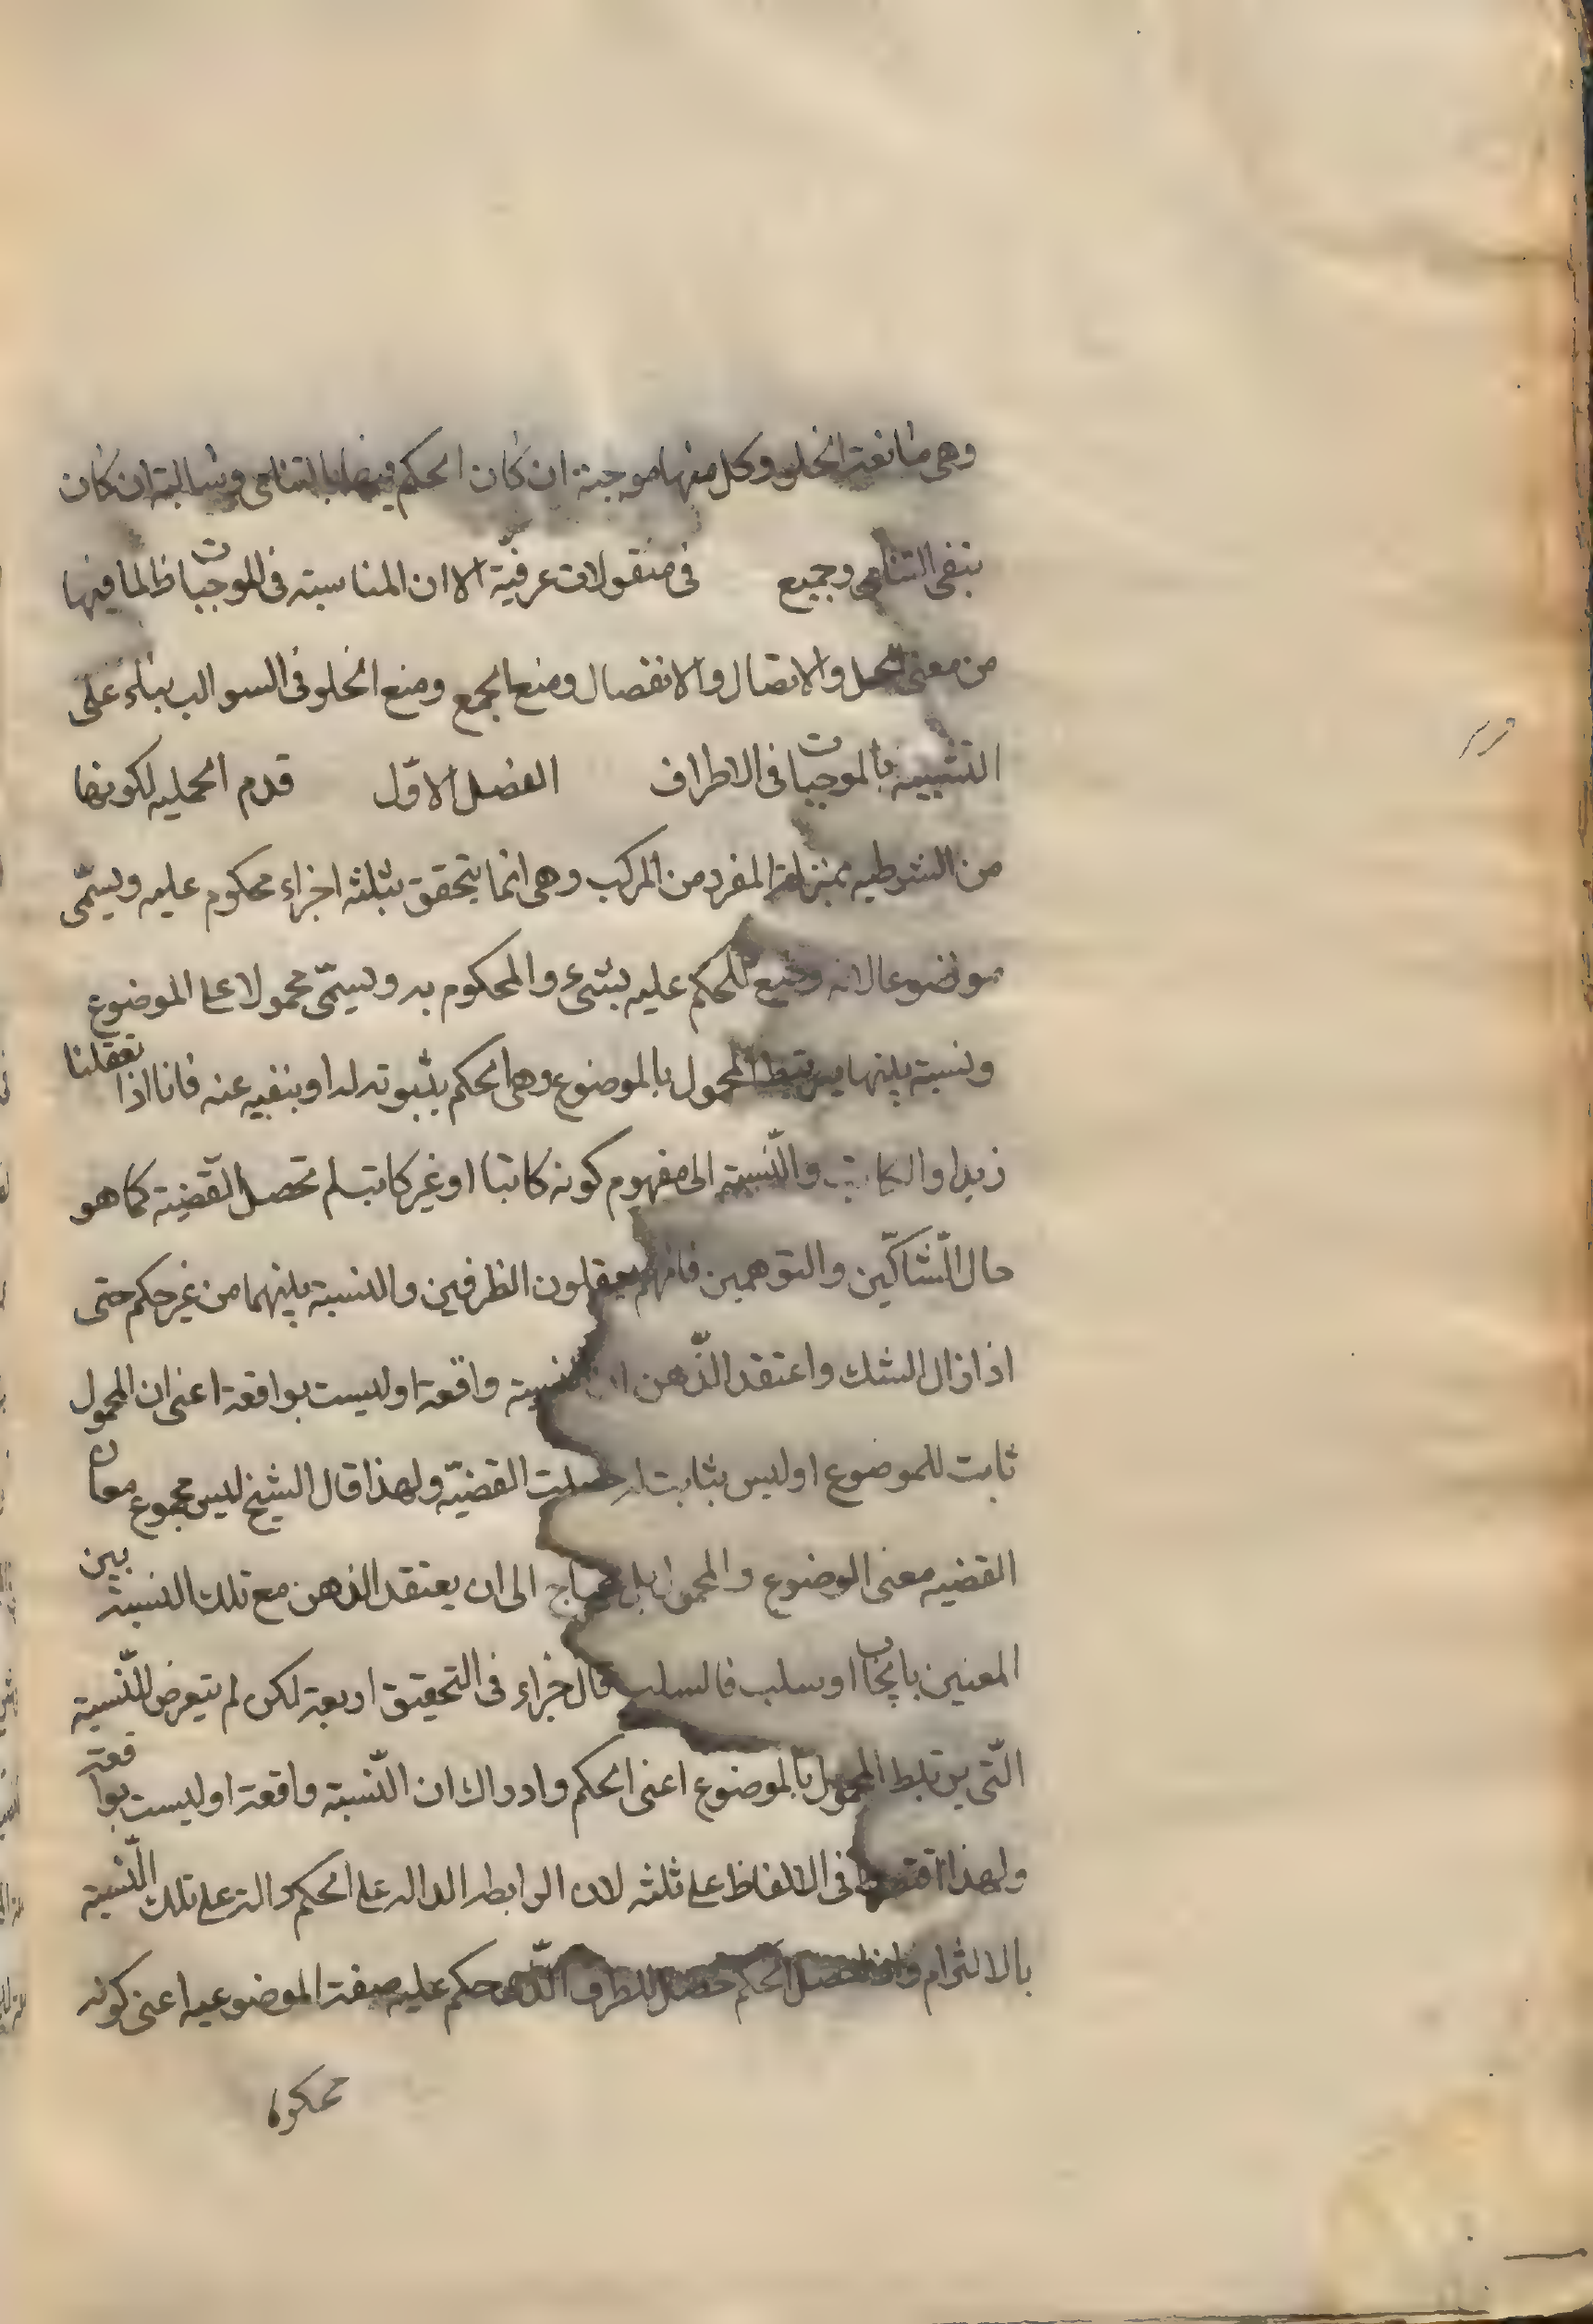 وهى مانعة الخلو وكل منها موجبة ان كان الحكم فيها بالتنافى وسالبة ان كان
بنفى التنافى وجميع فى منقولات عرفيّة الا ان المناسبة فى الموجبات ظ لما فيها
من معنى الحمل والاتصال والانفصال ومنع الجمع ومنع الخلو فى السوالب بناء على
التشبيه بالموجبات فى الاطراف الفصل الاوّل قدم الحمليه لكونها
من الشرطيه بمنزلة المفرد من المركب وهى انما يتحقق بثلثه اجزاء محكوم عليه ويسمّى
موضوعا لانه وضع للحكم عليه بشىء والمحكوم به ويسمّى محمولا على الموضوع
ونسبة بينها يرتبط المحمول بالموضوع وهى الحكم بثبوته له او بنفيه عنه فانا اذا تعقلنا
زيدا والكاتب والنّسبة الى مفهوم كونه كاتبا او غير كاتب لم تحصل القّضية كما هو
حال الشّاكّين والمتوهمين فانهم يعقلون الطرفين والنسبة بينهما من غير حكم حتى
اذا زال الشك واعتقد الذّهن ان النسبة واقعة او ليست بواقعة اعنى ان المحمول
ثابت للموضوع او ليس بثابت له حصلت القضيّه ولهذا قال الشيخ ليس مجموع معانى
القضيه معنى الموضوع والمحمول بل يحتاج الى ان يعتقد الذهن مع تلك النسبة بين
المعنين بايجاب او سلب فالسلب فالاجزاء فى التحقيق اربعة لكن لم يتعرض للنّسبة
التّى يرتبط المحمول بالموضوع اعنى الحكم وادراك ان النّسبة واقعة او ليست بواقعة
ولهذا اقتصر فى الالفاظ على ثلثه لان الرابطه الداله على الحكم دالة على تلك النّسبة
بالالتزام واذا حصل الحكم حصل للطرف الّذى حكم عليه صفة الموضوعيه اعنى كونه
محكوما